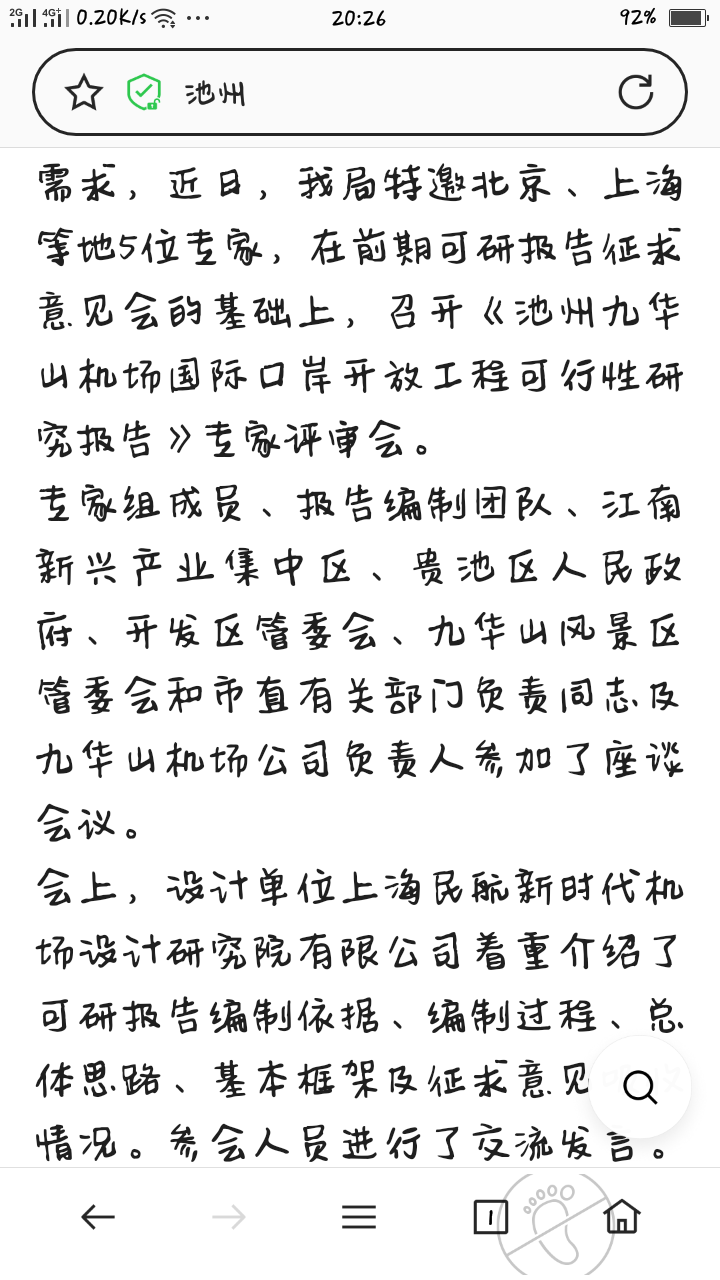 2G 4G+ 0.20K/s 20:26 92%
池州
需求，近日，我局特邀北京、上海
等地5位专家，在前期可研报告征求
意见会的基础上，召开《池州九华
山机场国际口岸开放工程可行性研
究报告》专家评审会。
专家组成员、报告编制团队、江南
新兴产业集中区、贵池区人民政
府、开发区管委会、九华山风景区
管委会和市直有关部门负责同志及
九华山机场公司负责人参加了座谈
会议。
会上，设计单位上海民航新时代机
场设计研究院有限公司着重介绍了
可研报告编制依据、编制过程、总
体思路、基本框架及征求意见
情况。参会人员进行了交流发言。
1